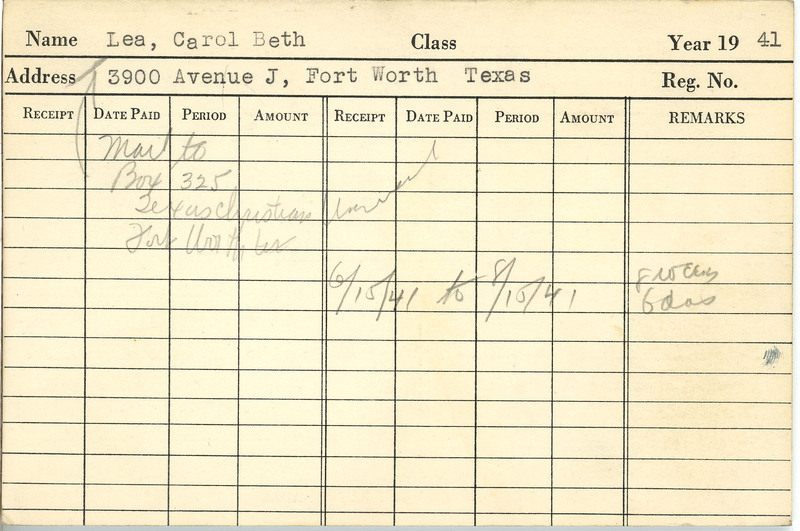 Name Lea, Carol Beth Class Year 19 41
Address 3900 Avenue J, Fort Worth Texas Reg. No.
RECEIPT DATE PAID PERIOD AMOUNT RECEIPT DATE PAID PERIOD AMOUNT REMARKS
Mail to
Box 325
Texas Christian
Fort Worth, Tex
6/15/41 to 8/15/41
8 weeks
6 das